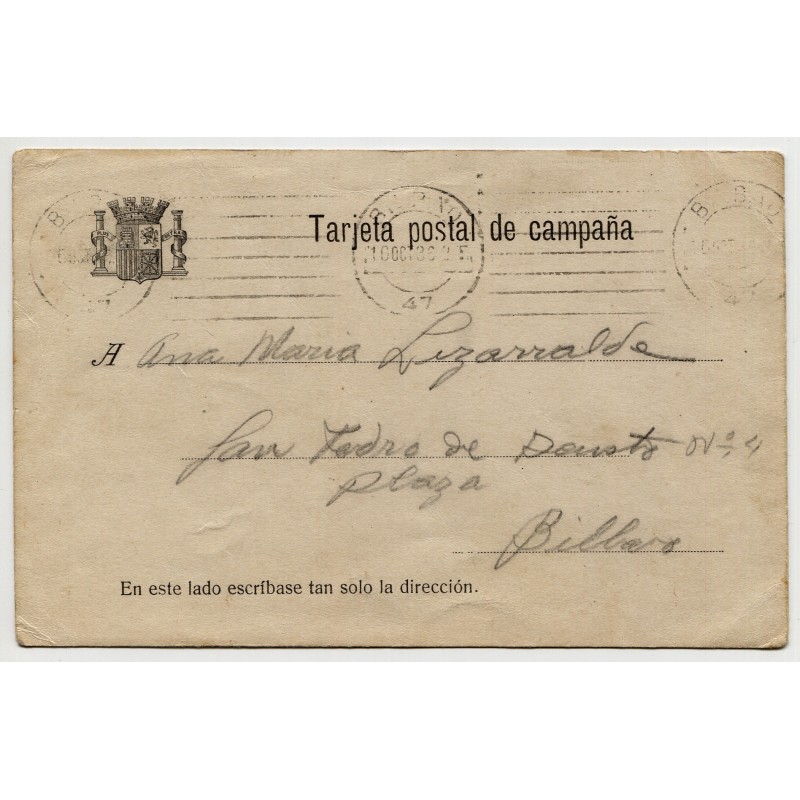 BILBAO
Tarjeta postal de campaña
10 OCT 36
47
A Ana Maria Lizarralde
San Pedro de Deusto Nº 4
Plaza
Billbao
En este lado escríbase tan solo la dirección.